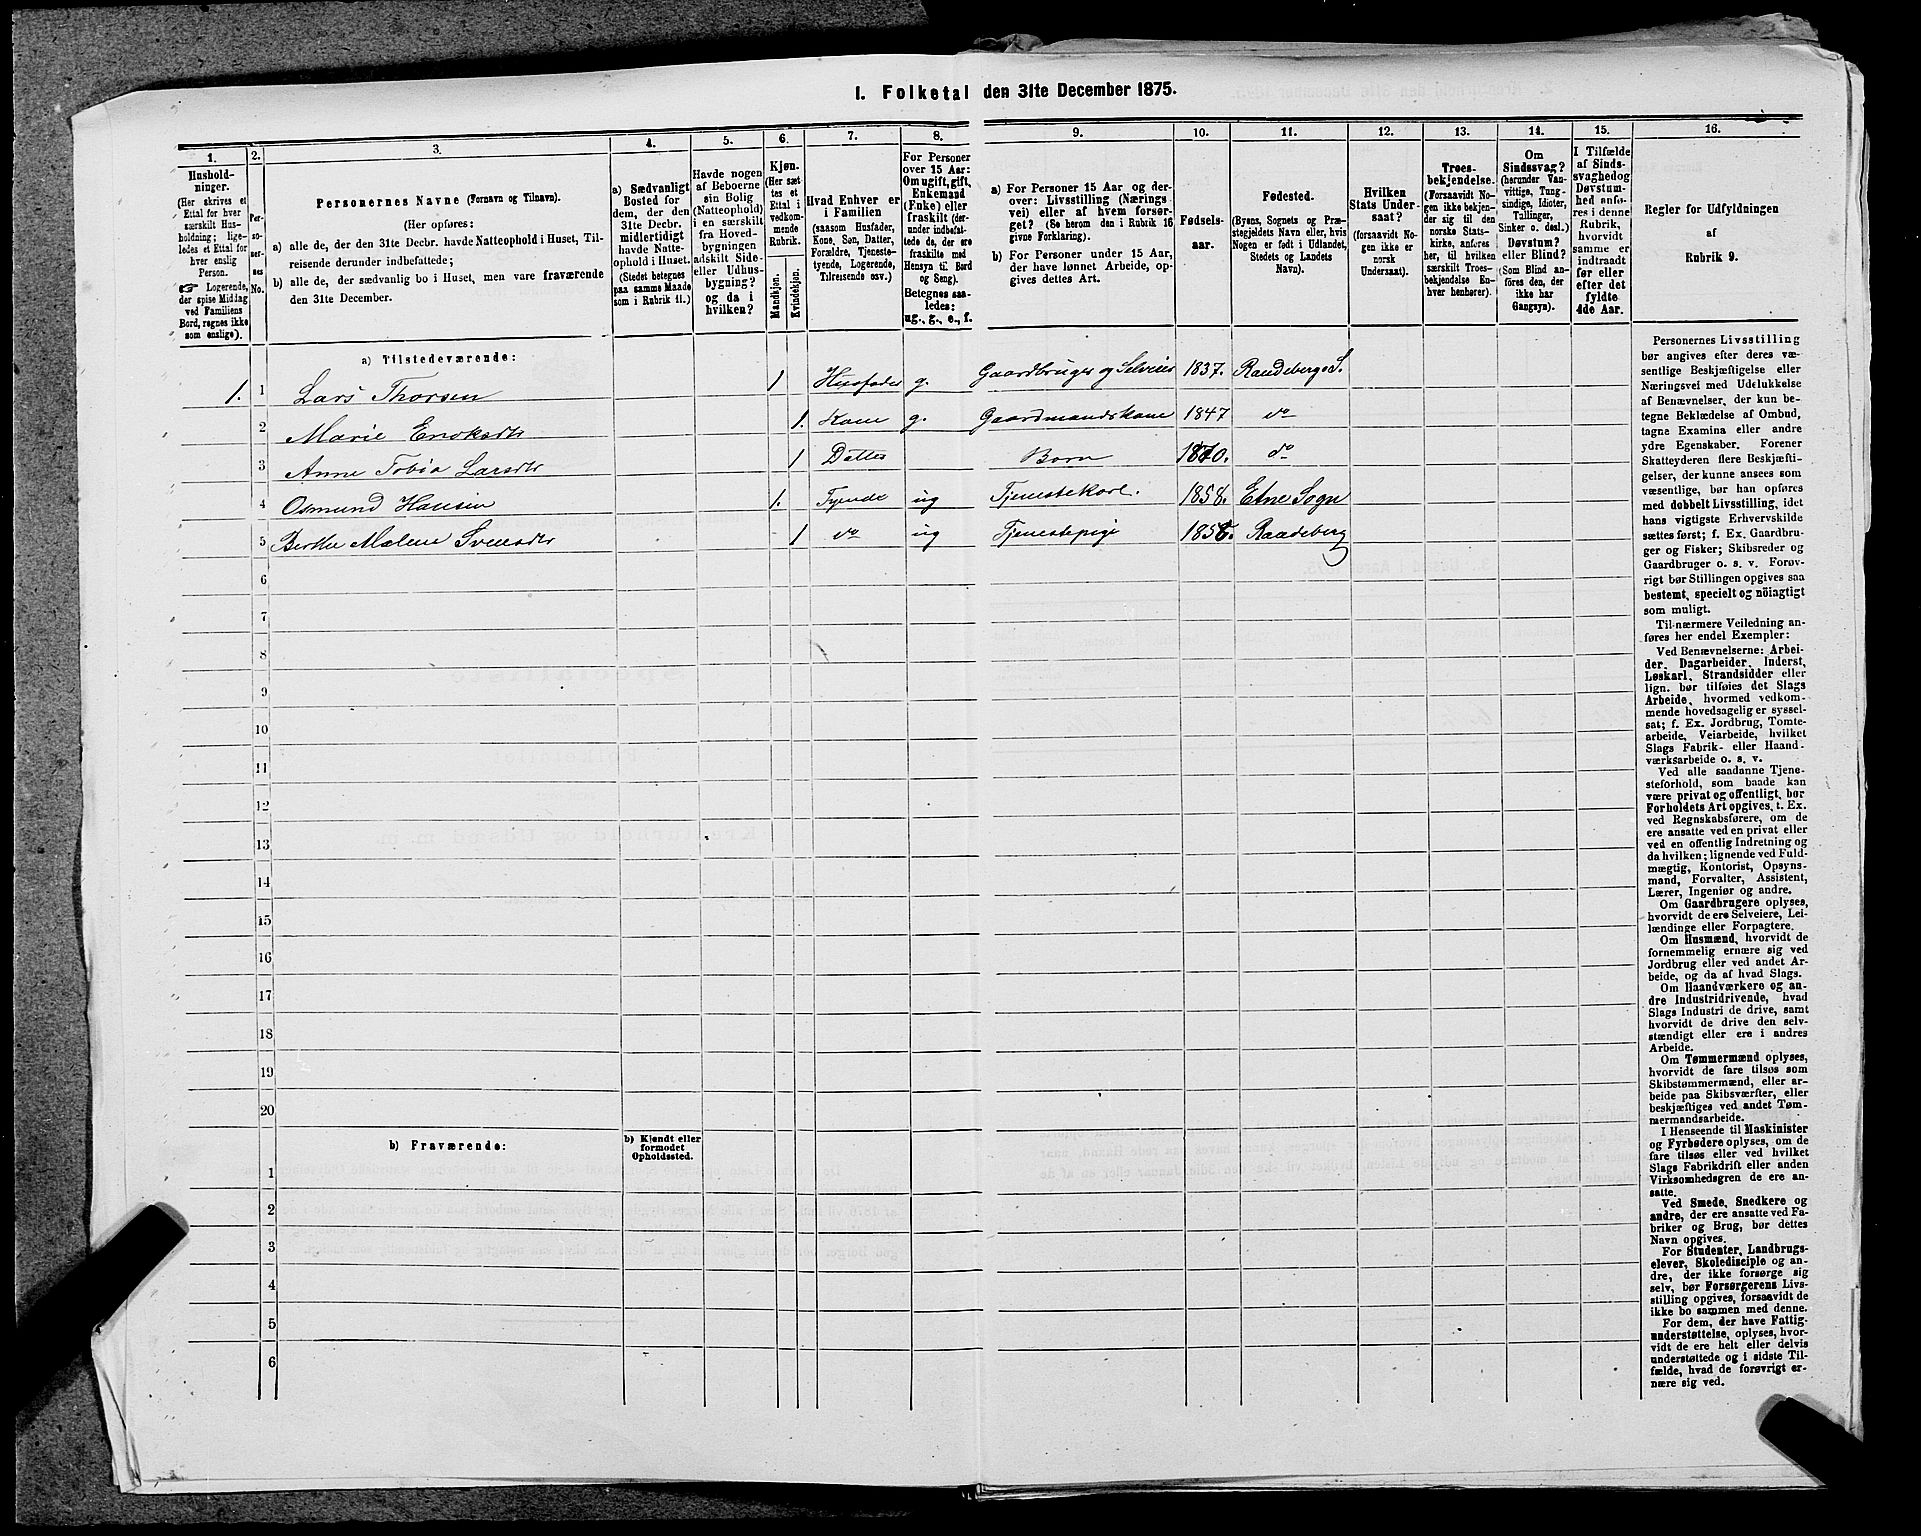 I. Folketal den 31te December 1875.
1. 2. 3. 4. 5. 6. 7. 8. 9. 10. 11. 12. 13. 14. 15. 16.
Husholdninger.
(Her skrives et
Ettal for hver
særskilt Husholdning;
ligeledes et Ettal for
hver enslig
Person.
☞ Logerende,
der spise Middag
ved Familiens
Bord, regnes ikke
som enslige).
Personernes No.
Personernes Navne (Fornavn og Tilnavn).
(Her opføres:
a) alle de, der den 31te Decbr. havde Natteophold i Huset, Tilreisende derunder indbefattede;
b) alle de, der sædvanlig bo i Huset, men vare fraværende
den 31te December.
a) Sædvanligt
Bosted for
dem, der den
31te Decbr.
midlertidigt
havde Natteophold i Huset.
(Stedet betegnes
paa samme Maade
som i Rubrik 11.)
Havde nogen
af Beboerne
sin Bolig
(Natteophold)
i en særskilt
fra Hovedbygningen
adskilt Side-
eller Udhusbygning?
og da i
hvilken?
Kjøn.
(Her sættes et
Ettal i
vedkommende
Rubrik.
Mandkjøn.
Kvindekjøn.
Hvad Enhver er
i Familien
(saasom Husfader,
Kone, Søn, Datter,
Forældre, Tjenestetyende, Logerende,
Tilreisende osv.)
For Personer
over 15 Aar:
Om ugift, gift,
Enkemand
(Enke) eller
fraskilt (derunder indbefattede de, der ere
fraskilte med
Hensyn til Bord
og Seng).
Betegnes saaledes:
ug., g., e., f.
a) For Personer 15 Aar og derover: Livsstilling (Næringsvei) eller af hvem forsørget? (Se herom den i Rubrik 16
givne Forklaring).
b) For Personer under 15 Aar,
der have lønnet Arbeide, opgives dettes Art.
Fødselsaar.
Fødested.
(Byens, Sognets og Præstegjeldets Navn eller, hvis
Nogen er født i Udlandet,
Stedets og Landets
Navn).
Hvilken
Stats Undersaat?
(forsaavidt Nogen ikke er
norsk
Undersaat).
Troesbekjendelse.
(Forsaavidt Nogen ikke bekjender sig til den
norske Statskirke, anføres
her, til hvilken
særskilt Troesbekjendelse Enhver henhører).
Om
Sindssvag?
(herunder Vanvittige, Tungsindige, Idioter,
Tullinger,
Sinker o. desl.)
Døvstum?
eller Blind?
(Som Blind anføres den, der
ikke har
Gangsyn).
I Tilfælde
af Sindssvaghed og
Døvstumhed anføres i denne
Rubrik,
hvorvidt
samme er
indtraadt
før eller
efter det
fyldte
4de Aar.
Regler for Udfyldningen
af
Rubrik 9.
a) Tilstedeværende:
1. 1 Lars Thorsen 1 Husfader g. Gaardbruger og Selveier 1837. Randeberg S.
2 Marie Enoksdtr 1. Kone g. Gaardmandskone 1847 do
3 Anne Tobia Larsdtr 1 Datter Barn 1870. do
4 Osmund Hansen 1. Tyende ug Tjenestekarl. 1858. Etne Sogn
5 Berthe Malene Svensdtr 1 do ug Tjenestepige 1856. Raadeberg
6
7
8
9
10
11
12
13
14
15
16
17
18
19
20
b) Fraværende:
b) Kjendt eller
formodet
Opholdssted.
1
2
3
4
5
6
Personernes Livsstilling
bør angives efter deres væsentlige Beskjæftigelse eller
Næringsvei med Udelukkelse
af Benævnelser, der kun betegne Beklædelse af Ombud,
tagne Examina eller andre
ydre Egenskaber. Forener
Skatteyderen flere Beskjæftigelser, der kunne ansees som
væsentlige, bør han opføres
med dobbelt Livsstilling, idet
hans vigtigste Erhvervskilde
sættes først; f. Ex. Gaardbruger og Fisker; Skibsreder og
Gaardbruger o. s. v. Forøvrigt bør Stillingen opgives saa
bestemt, specielt og nøiagtigt
som muligt.
Til nærmere Veiledning anføres her endel Exempler:
Ved Benævnelserne: Arbeider, Dagarbeider, Inderst,
Løskarl, Strandsidder eller
lign. bør tilføies det Slags
Arbeide, hvormed vedkommende hovedsagelig er sysselsat; f. Ex. Jordbrug, Tomtearbeide, Veiarbeide, hvilket
Slags Fabrik- eller Haandværksarbeide o. s. v.
Ved alle saadanne Tjenesteforhold, som baade kan
være privat og offentligt, bør
Forholdets Art opgives, t. Ex.
ved Regnskabsførere, om de
ere ansatte ved en privat eller
ved en offentlig Indretning og
da hvilken; lignende ved Fuldmægtig, Kontorist, Opsynsmand, Forvalter, Assistent,
Lærer, Ingeniør og andre.
Om Gaardbrugere oplyses,
hvorvidt de ere Selveiere, Leilændinge eller Forpagtere.
Om Husmænd, hvorvidt de
fornemmelig ernære sig ved
Jordbrug eller ved andet Arbeide, og da af hvad Slags.
Om Haandværkere og andre Industridrivende, hvad
Slags Industri de drive, samt
hvorvidt de drive den selvstændigt eller ere i andres
Arbeide.
Om Tømmermænd oplyses,
hvorvidt de fare tilsøs som
Skibstømmermænd, eller arbeide paa Skibsværfter, eller
beskjæftiges ved andet Tømmermandsarbeide.
I Henseende til Maskinister
og Fyrbødere oplyses, om de
fare tilsøs eller ved hvilket
Slags Fabrikdrift eller anden
Virksomhedsgren de ere ansatte.
Ved Smede, Snedkere og
andre, der ere ansatte ved Fabriker og Brug, bør dettes
Navn opgives.
For Studenter, Landbrugselever, Skoledisciple og andre, der ikke forsørge sig
selv, bør Forsørgerens Livsstilling opgives, forsaavidt de
ikke bo sammen med denne.
For dem, der have Fattigunderstøttelse, oplyses, hvorvidt de ere helt eller delvis
understøttede og i sidste Tilfælde, hvad de forøvrigt ernære sig ved.